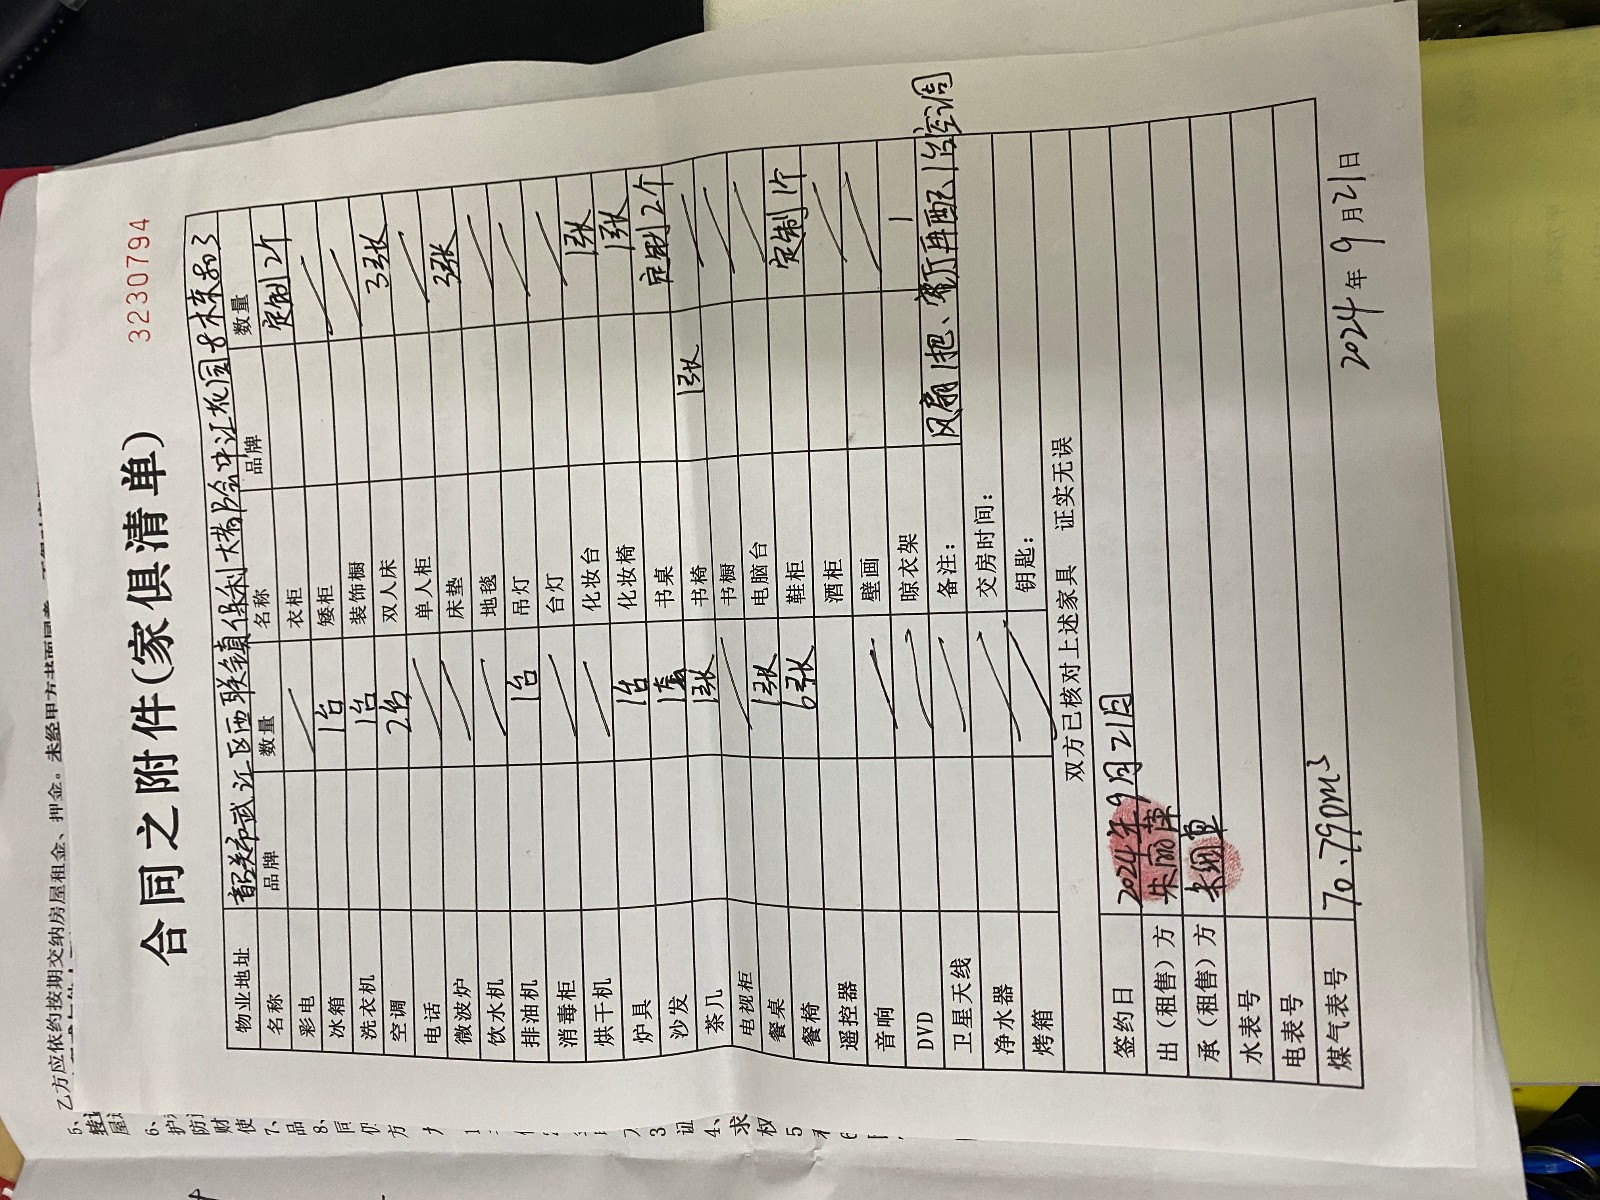 3230794
合同之附件(家俱清单)
物业地址 韶关市武江区西联镇保利大都会中江花园8栋803
名称 品牌 数量 名称 品牌 数量
彩电 衣柜 定制2个
冰箱 1台 矮柜
洗衣机 1台 装饰橱
空调 2台 双人床 3张
电话 单人柜
微波炉 床垫 3张
饮水机 地毯
排油机 1台 吊灯
消毒柜 台灯
烘干机 化妆台 1张
炉具 1台 化妆椅 1张
沙发 1套 书桌 定制2个
茶几 1张 书椅 1张
电视柜 书橱
餐桌 1张 电脑台
餐椅 6张 鞋柜 定制1个
遥控器 酒柜
音响 壁画
DVD 晾衣架 1
卫星天线 备注: 风扇1把、客厅再配1台空调
净水器 交房时间:
烤箱 钥匙:
双方已核对上述家具 证实无误
签约日 2024年9月21日
出（租售）方
承（租售）方
水表号
电表号
煤气表号 70.790m³
2024年9月21日
乙方应依约按期交纳房屋租金、押金。未经甲方书面同意